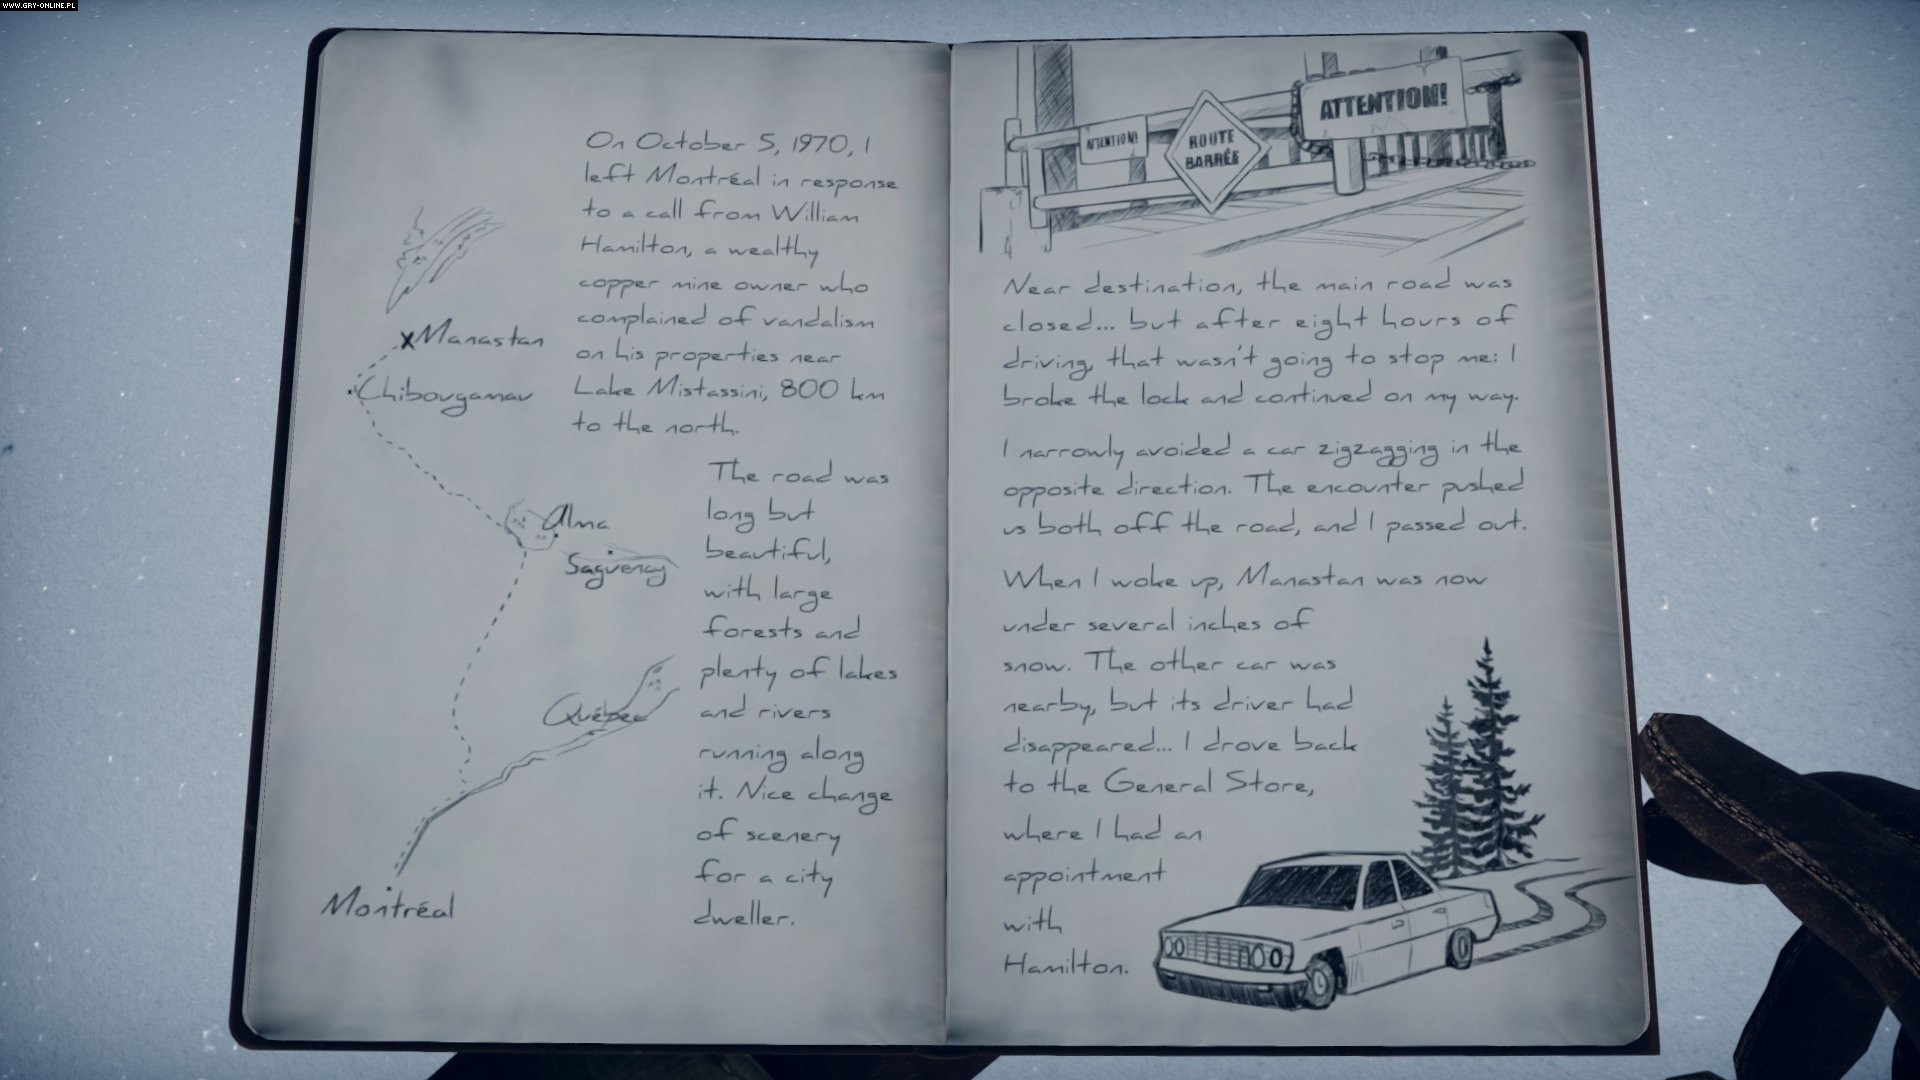 WWW.GRY-ONLINE.PL
On October 5, 1970, I
left Montréal in response
to a call from William
Hamilton, a wealthy
copper mine owner who
complained of vandalism
on his properties near
Lake Mistassini, 800 km
to the north.
The road was
long but
beautiful,
with large
forests and
plenty of lakes
and rivers
running along
it. Nice change
of scenery
for a city
dweller.
Manastan
Chibougamau
Alma
Saguenay
Québec
Montréal
ATTENTION!
ROUTE
BARRÉE
ATTENTION!
Near destination, the main road was
closed... but after eight hours of
driving, that wasn't going to stop me: I
broke the lock and continued on my way.
I narrowly avoided a car zigzagging in the
opposite direction. The encounter pushed
us both off the road, and I passed out.
When I woke up, Manastan was now
under several inches of
snow. The other car was
nearby, but its driver had
disappeared... I drove back
to the General Store,
where I had an
appointment
with
Hamilton.